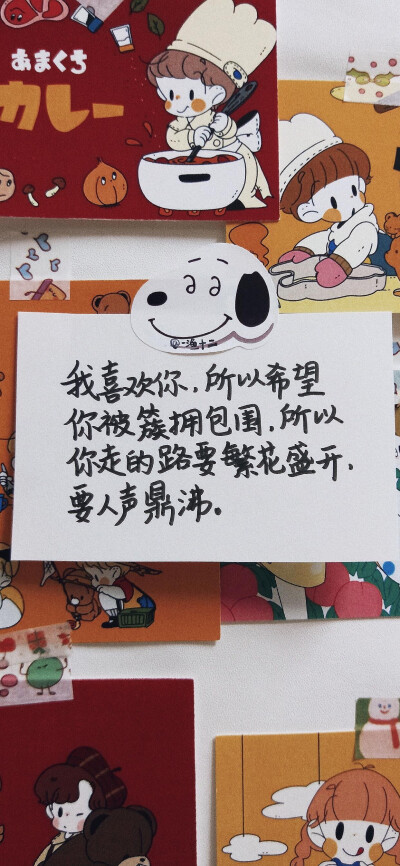 あまくち
カレー
我喜欢你，所以希望
你被簇拥包围，所以
你走的路要繁花盛开，
要人声鼎沸。